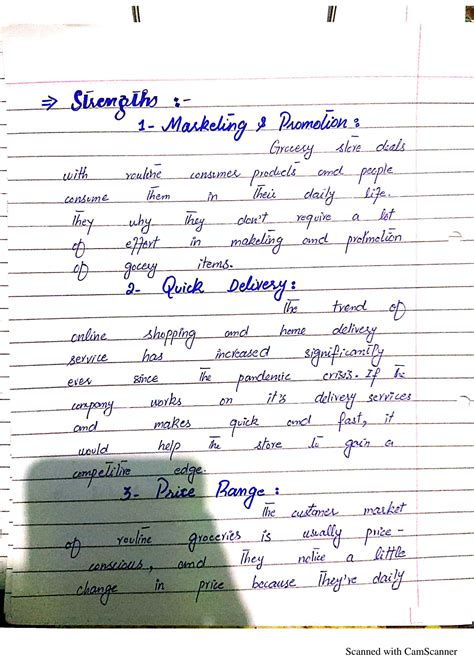 ⇒ Strengths :-
1- Marketing & Promotion :
Grocery store deals
with routine consumer products and people
consume them in their daily life.
They why they don't require a lot
of effort in maketing and protmotion
of gocery items.
2- Quick Delivery :
The trend of
online shopping and home delivery
service has increased significantly
ever since the pandemic crisis. If the
company works on it's delivery services
and makes quick and fast, it
would help the store to gain a
competitive edge.
3- Price Range :
The customer market
of routine groceries is usually price-
conscious, and they notice a little
change in price because they're daily
Scanned with CamScanner